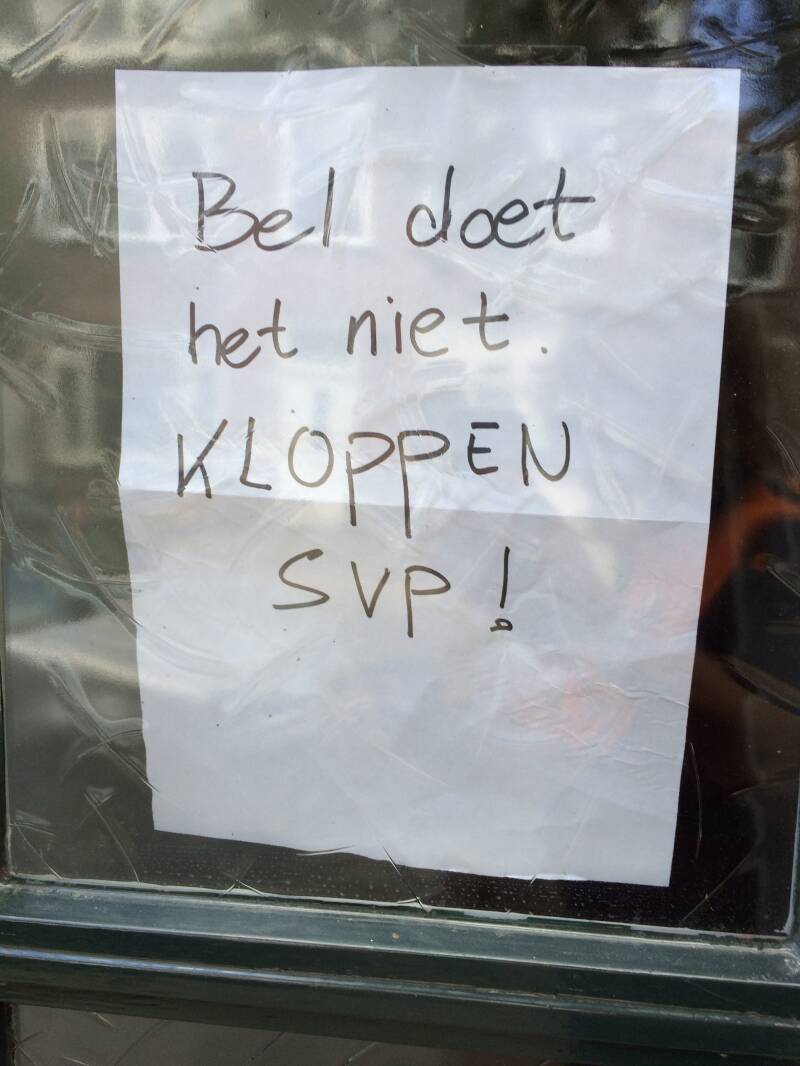 Bel doet
het niet.
KLOPPEN
SVP!